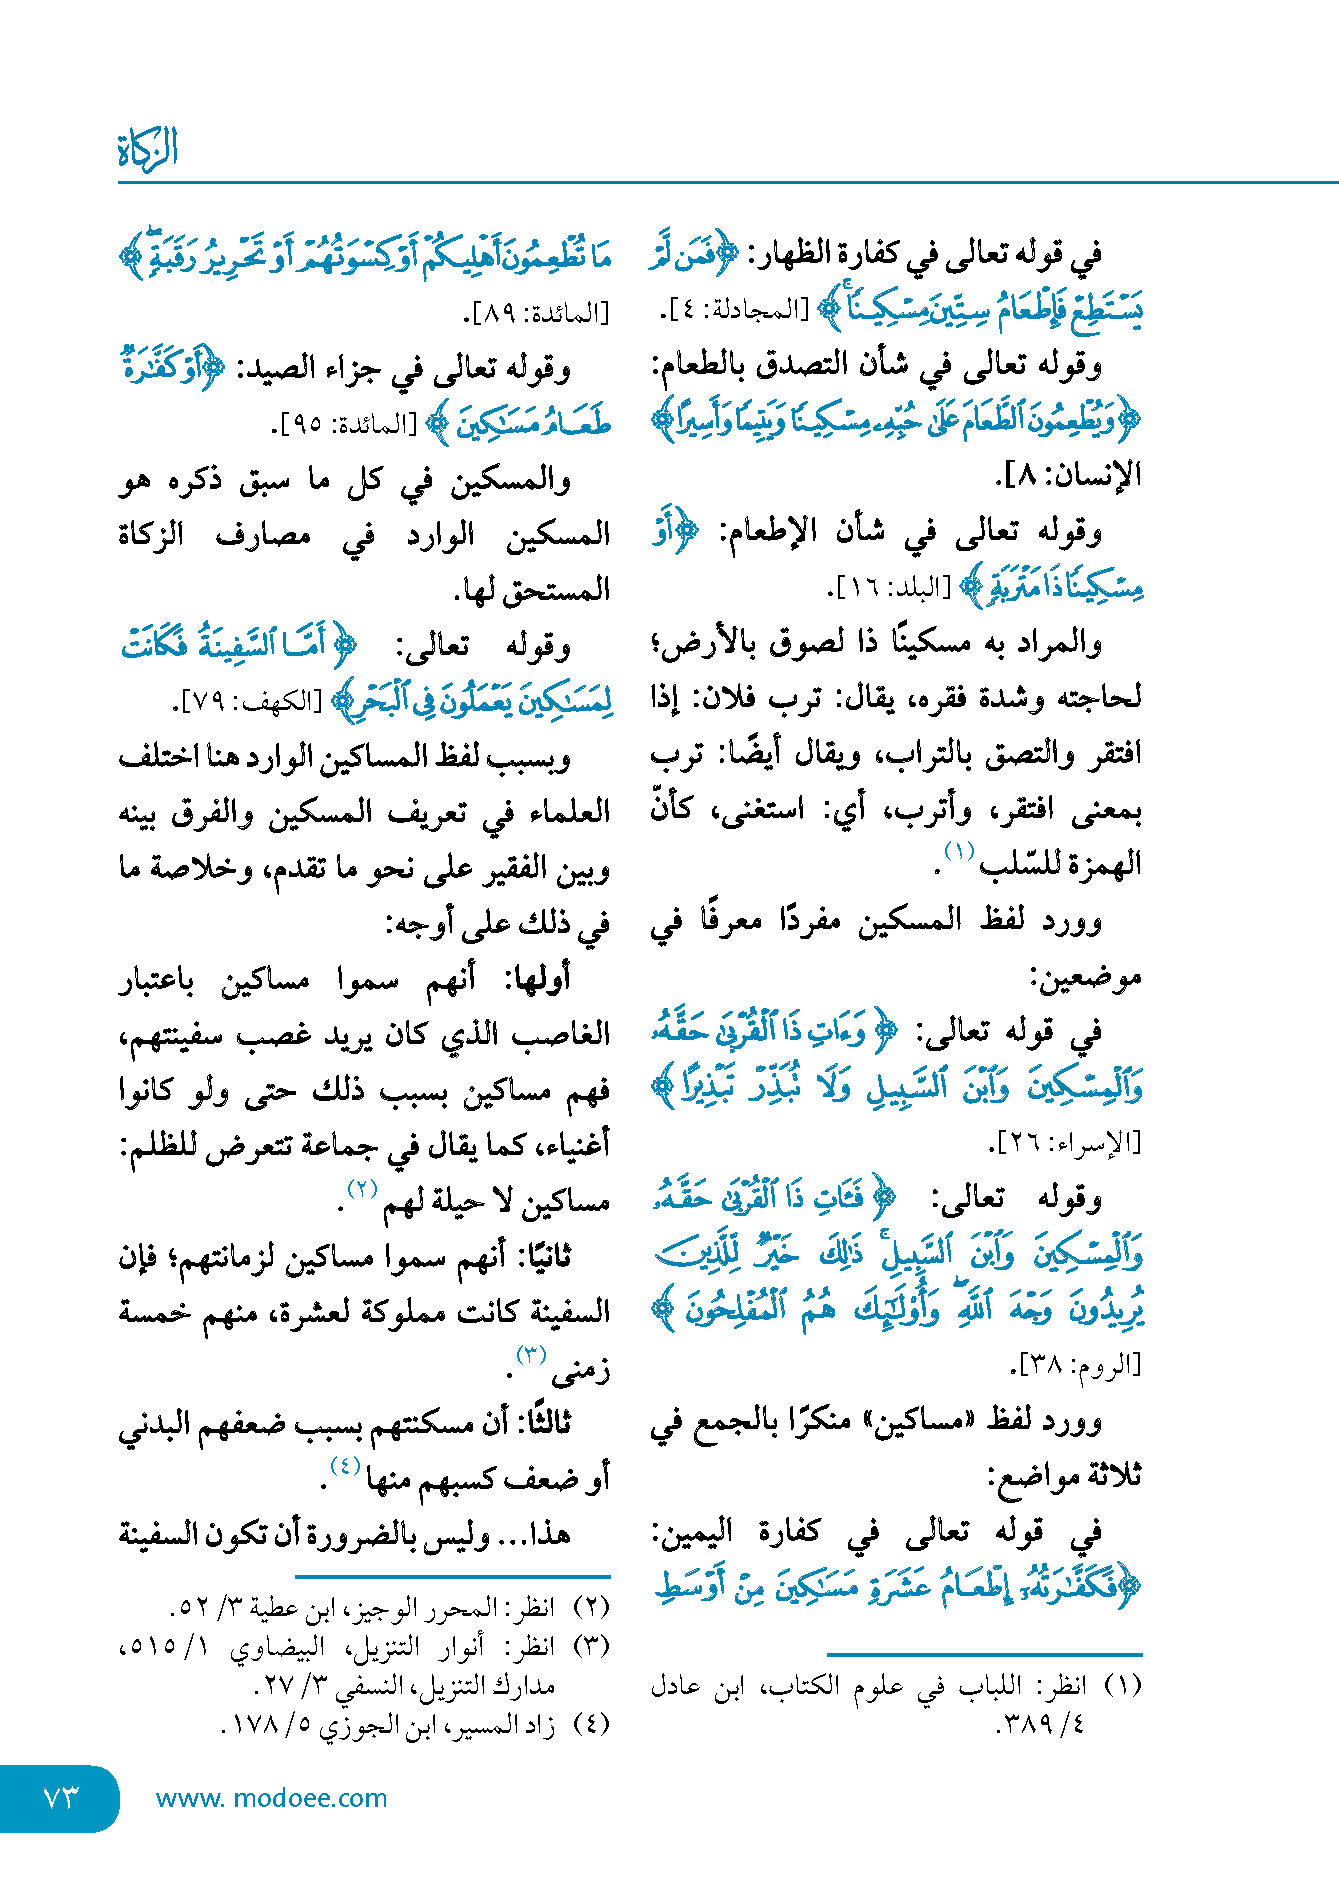 الزكاة
في قوله تعالى في كفارة الظهار: ﴿فَمَن لَّمْ
يَسْتَطِعْ فَإِطْعَامُ سِتِّينَ مِسْكِينًا ۚ﴾ [المجادلة: ٤].
وقوله تعالى في شأن التصدق بالطعام:
﴿وَيُطْعِمُونَ ٱلطَّعَامَ عَلَىٰ حُبِّهِۦ مِسْكِينًا وَيَتِيمًا وَأَسِيرًا﴾
الإنسان: ٨].
وقوله تعالى في شأن الإطعام: ﴿أَوْ
مِسْكِينًا ذَا مَتْرَبَةٍ﴾ [البلد: ١٦].
والمراد به مسكينًا ذا لصوق بالأرض؛
لحاجته وشدة فقره، يقال: ترب فلان: إذا
افتقر والتصق بالتراب، ويقال أيضًا: ترب
بمعنى افتقر، وأترب، أي: استغنى، كأنّ
الهمزة للسّلب(١).
وورد لفظ المسكين مفردًا معرفًا في
موضعين:
في قوله تعالى: ﴿وَءَاتِ ذَا ٱلْقُرْبَىٰ حَقَّهُۥ
وَٱلْمِسْكِينَ وَٱبْنَ ٱلسَّبِيلِ وَلَا تُبَذِّرْ تَبْذِيرًا﴾
[الإسراء: ٢٦].
وقوله تعالى: ﴿فَـَٔاتِ ذَا ٱلْقُرْبَىٰ حَقَّهُۥ
وَٱلْمِسْكِينَ وَٱبْنَ ٱلسَّبِيلِ ۚ ذَٰلِكَ خَيْرٌ لِّلَّذِينَ
يُرِيدُونَ وَجْهَ ٱللَّهِ ۖ وَأُو۟لَـٰٓئِكَ هُمُ ٱلْمُفْلِحُونَ﴾
[الروم: ٣٨].
وورد لفظ «مساكين» منكرًا بالجمع في
ثلاثة مواضع:
في قوله تعالى في كفارة اليمين:
﴿فَكَفَّـٰرَتُهُۥٓ إِطْعَامُ عَشَرَةِ مَسَـٰكِينَ مِنْ أَوْسَطِ
(١) انظر: اللباب في علوم الكتاب، ابن عادل
٤/ ٣٨٩.
مَا تُطْعِمُونَ أَهْلِيكُمْ أَوْ كِسْوَتُهُمْ أَوْ تَحْرِيرُ رَقَبَةٍ ۖ﴾
[المائدة: ٨٩].
وقوله تعالى في جزاء الصيد: ﴿أَوْ كَفَّـٰرَةٌ
طَعَامُ مَسَـٰكِينَ﴾ [المائدة: ٩٥].
والمسكين في كل ما سبق ذكره هو
المسكين الوارد في مصارف الزكاة
المستحق لها.
وقوله تعالى: ﴿أَمَّا ٱلسَّفِينَةُ فَكَانَتْ
لِمَسَـٰكِينَ يَعْمَلُونَ فِى ٱلْبَحْرِ﴾ [الكهف: ٧٩].
وبسبب لفظ المساكين الوارد هنا اختلف
العلماء في تعريف المسكين والفرق بينه
وبين الفقير على نحو ما تقدم، وخلاصة ما
في ذلك على أوجه:
أولها: أنهم سموا مساكين باعتبار
الغاصب الذي كان يريد غصب سفينتهم،
فهم مساكين بسبب ذلك حتى ولو كانوا
أغنياء، كما يقال في جماعة تتعرض للظلم:
مساكين لا حيلة لهم(٢).
ثانيًا: أنهم سموا مساكين لزمانتهم؛ فإن
السفينة كانت مملوكة لعشرة، منهم خمسة
زمنى(٣).
ثالثًا: أن مسكنتهم بسبب ضعفهم البدني
أو ضعف كسبهم منها(٤).
هذا... وليس بالضرورة أن تكون السفينة
(٢) انظر: المحرر الوجيز، ابن عطية ٣/ ٥٢.
(٣) انظر: أنوار التنزيل، البيضاوي ١/ ٥١٥،
مدارك التنزيل، النسفي ٣/ ٢٧.
(٤) زاد المسير، ابن الجوزي ٥/ ١٧٨.
٧٣
www. modoee.com